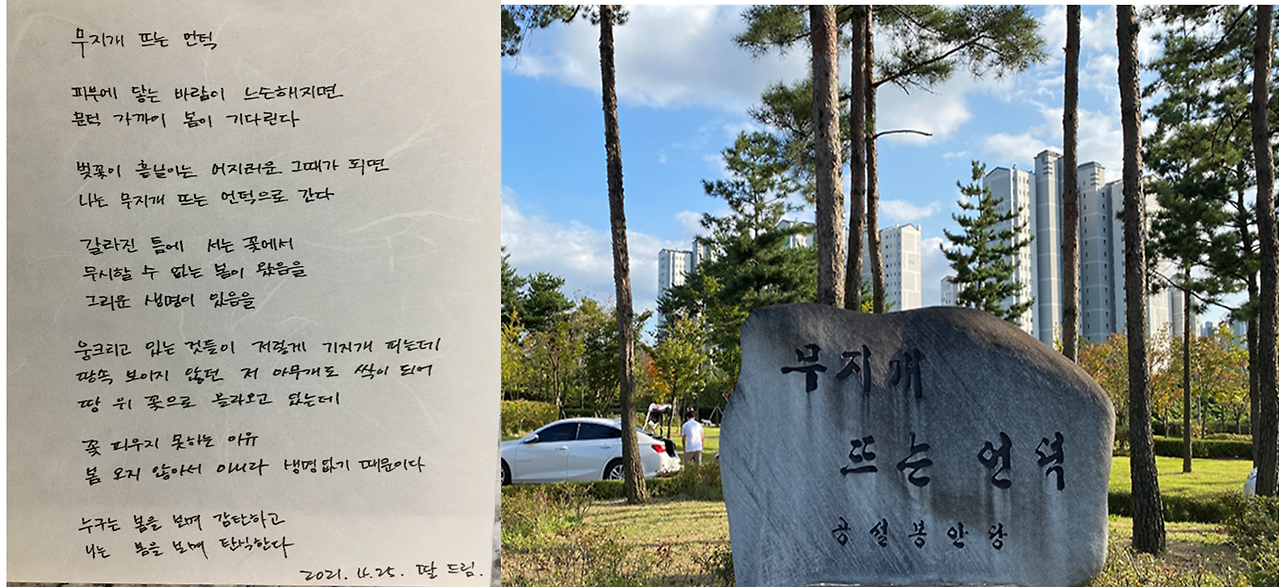 무지개 뜨는 언덕
피부에 닿는 바람이 느슨해지면
문턱 가까이 봄이 기다린다
벚꽃이 흩날이는 어지러운 그때가 되면
나는 무지개 뜨는 언덕으로 간다
갈라진 틈에 서는 꽃에서
무시할 수 없는 봄이 왔음을
그리운 생명이 있음을
웅크리고 있는 것들이 저렇게 기지개 펴는데
땅속 보이지 않던 저 아무개도 싹이 되어
땅 위 꽃으로 올라오고 있는데
꽃 피우지 못하는 이유
봄 오지 않아서 아니라 생명 없기 때문이다
누구는 봄을 보며 감탄하고
나는 봄을 보며 탄식한다
2021. 4. 25. 딸 드림.
무지개
뜨는 언덕
공설봉안당